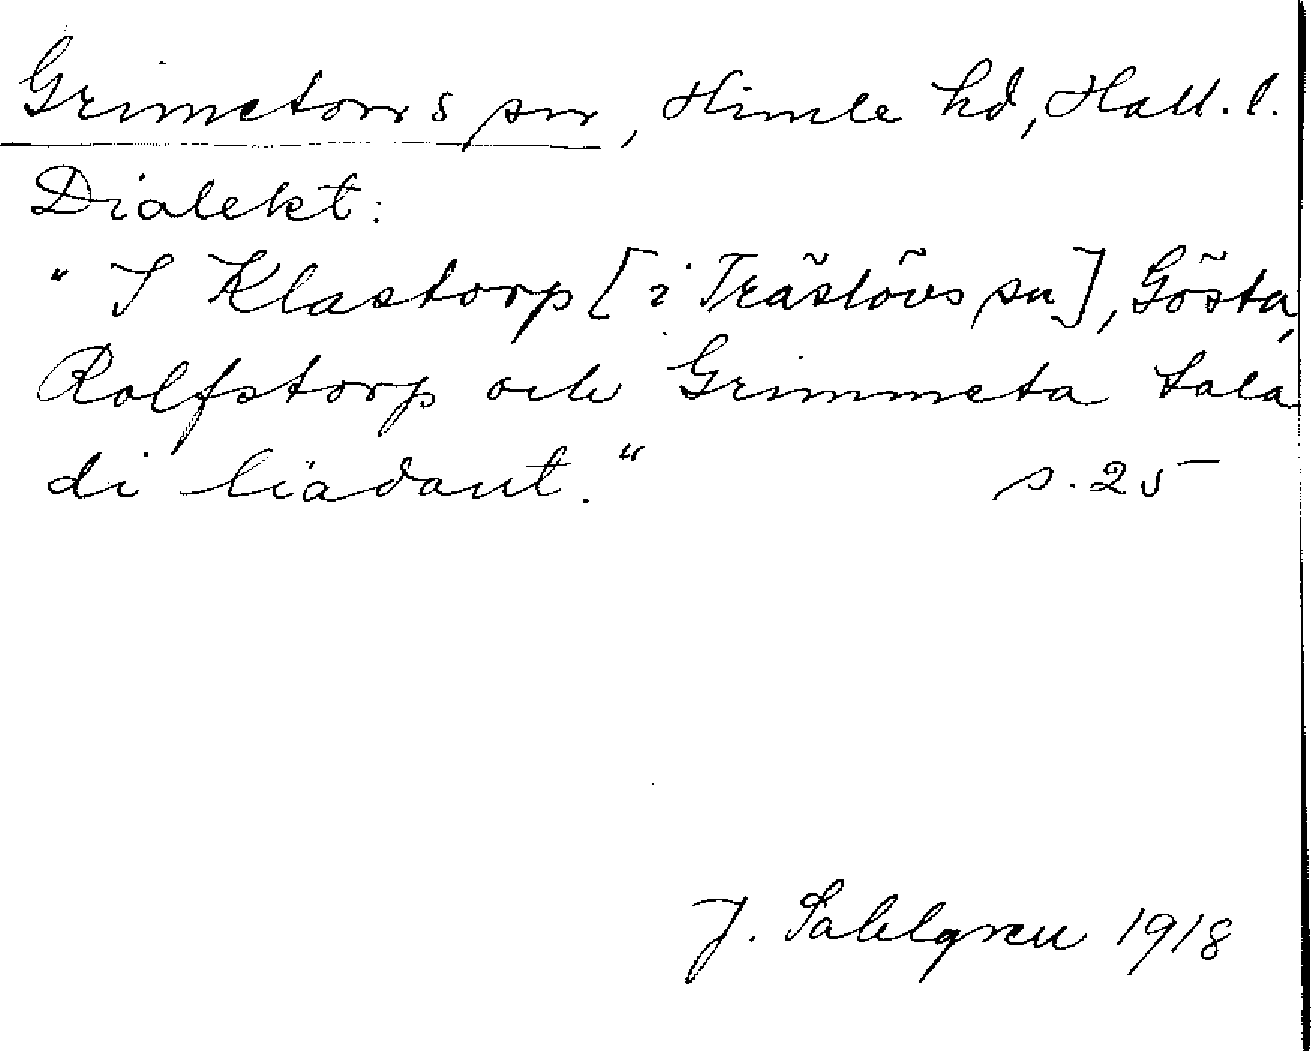 Grimetons sn, Himle hd, Hall. l.
Dialekt:
"I Klastorp [i Träslövs sn], Gösta,
Rolfstorp och Grimmeta tala
di liadant."  s. 25
J. Sahlgren 1918